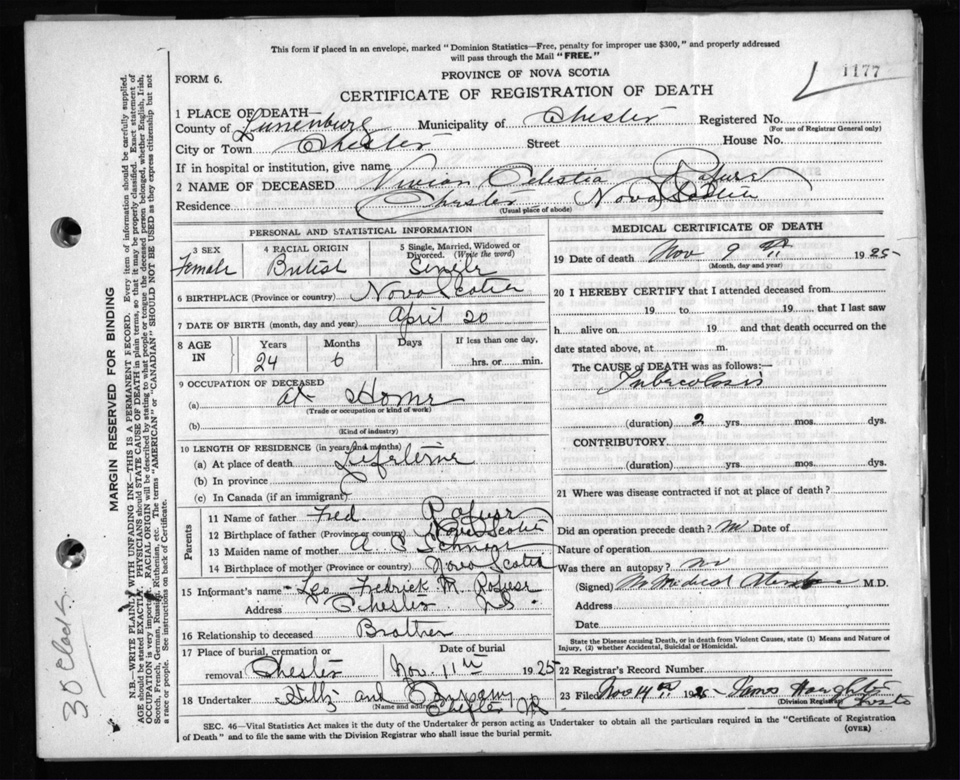 This form if placed in an envelope, marked "Dominion Statistics—Free, penalty for improper use $300," and properly addressed
will pass through the Mail "FREE."
FORM 6.
PROVINCE OF NOVA SCOTIA
1177
CERTIFICATE OF REGISTRATION OF DEATH
1 PLACE OF DEATH—
County of Lunenburg Municipality of Chester Registered No.
(For use of Registrar General only)
City or Town Chester Street House No.
If in hospital or institution, give name
2 NAME OF DECEASED Vivian Celestia Rafuse
Residence Chester Nova Scotia
(Usual place of abode)
PERSONAL AND STATISTICAL INFORMATION
3 SEX 4 RACIAL ORIGIN 5 Single, Married, Widowed or
Divorced. (Write the word)
Female British Single
6 BIRTHPLACE (Province or country) Nova Scotia
7 DATE OF BIRTH (month, day and year) April 20
8 AGE IN Years Months Days If less than one day,
24 6 hrs. or min.
9 OCCUPATION OF DECEASED
(a) at Home
(Trade or occupation or kind of work)
(b)
(Kind of industry)
10 LENGTH OF RESIDENCE (in years and months)
(a) At place of death Lifetime
(b) In province
(c) In Canada (if an immigrant)
Parents
11 Name of father Fred. Rafuse
12 Birthplace of father (Province or country) Nova Scotia
13 Maiden name of mother A C
14 Birthplace of mother (Province or country) Nova Scotia
15 Informant's name Leo Fedrick M. Rafuse
Address Chester N.S.
16 Relationship to deceased Brother
17 Place of burial, cremation or Date of burial
removal Chester Nov. 11th 1925
18 Undertaker and Company
(Name and address) Chester NS
MEDICAL CERTIFICATE OF DEATH
19 Date of death Nov 9th 1925
(Month, day and year)
20 I HEREBY CERTIFY that I attended deceased from
19 to 19 that I last saw
h alive on 19 and that death occurred on
date stated above, at m.
The CAUSE OF DEATH was as follows:—
Tuberculosis
(duration) 2 yrs. mos. dys.
CONTRIBUTORY
(duration) yrs. mos. dys.
21 Where was disease contracted if not at place of death?
Did an operation precede death? no Date of
Nature of operation
Was there an autopsy? no
(Signed) No Medical Attendance M.D.
Address
Date
State the Disease causing Death, or in death from Violent Causes, state (1) Means and Nature of
Injury, (2) whether Accidental, Suicidal or Homicidal.
22 Registrar's Record Number
23 Filed Nov 14th 1925 James
(Division Registrar) Chester
SEC. 46—Vital Statistics Act makes it the duty of the Undertaker or person acting as Undertaker to obtain all the particulars required in the "Certificate of Registration
of Death" and to file the same with the Division Registrar who shall issue the burial permit.
(OVER)
MARGIN RESERVED FOR BINDING
N.B.—WRITE PLAINLY WITH UNFADING INK—THIS IS A PERMANENT RECORD. Every item of information should be carefully supplied.
AGE should be stated EXACTLY. PHYSICIANS should STATE CAUSE OF DEATH in plain terms, so that it may be properly classified. Exact statement of
OCCUPATION is very important. RACIAL ORIGIN will be described by stating to what people or tongue the deceased person belonged, whether English, Irish,
Scotch, French, German, Russian, Ruthenian, etc. The terms "AMERICAN" or "CANADIAN" SHOULD NOT BE USED as they express citizenship but not
a race or people. See instructions on back of Certificate.